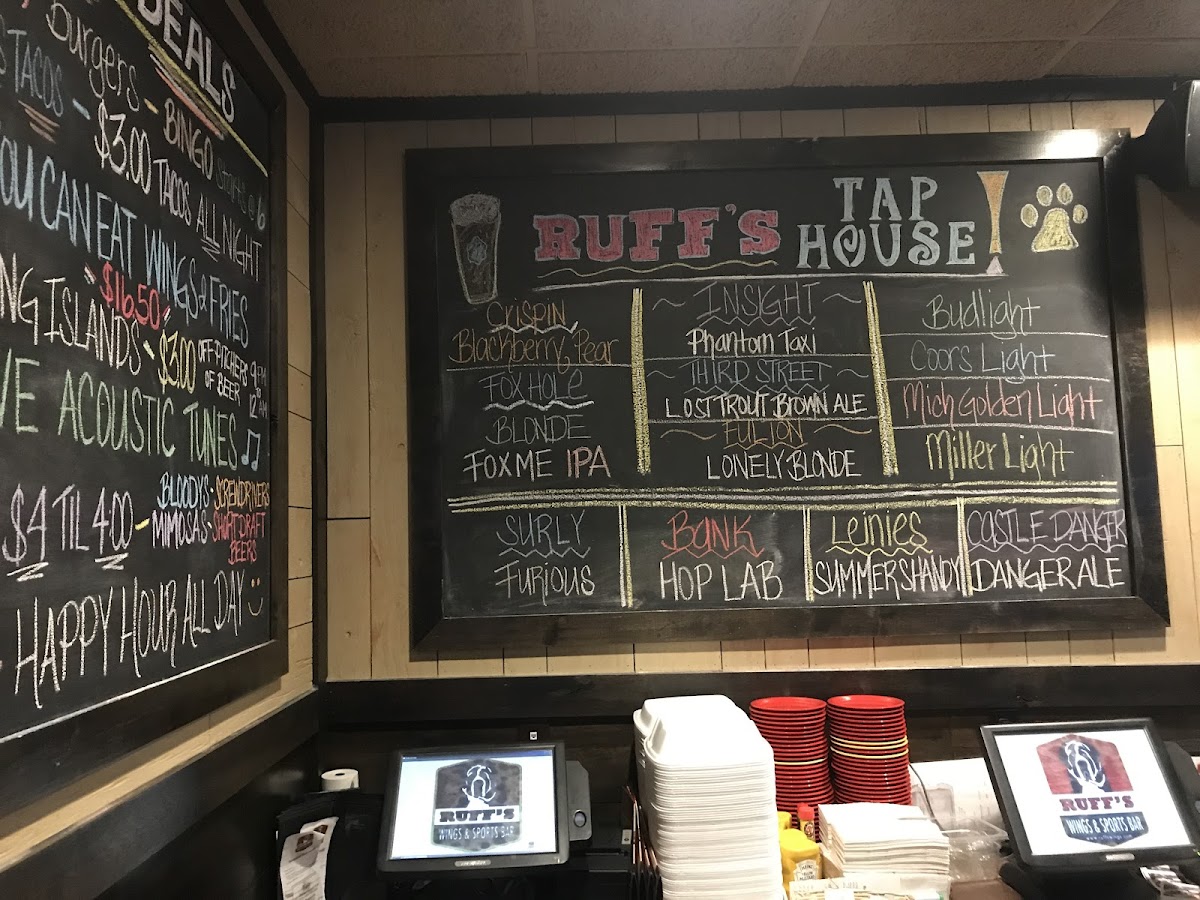 DEALS
Burgers - BINGO Starts @ 6
TACOS - $3.00 TACOS ALL NIGHT
YOU CAN EAT WINGS & FRIES
$16.50
NG ISLANDS ~ $3.00 OFF PITCHERS OF BEER 9PM to 12AM
VE ACOUSTIC TUNES
$4 TIL 4:00 - BLOODYS · SCREWDRIVERS
MIMOSAS · SHORT DRAFT BEERS
HAPPY HOUR ALL DAY
RUFF'S TAP HOUSE
CRISPIN
Blackberry Pear
FOXHOLE
BLONDE
FOXME IPA
~ INSIGHT ~
Phantom Taxi
THIRD STREET
LOST TROUT BROWN ALE
FULTON
LONELY BLONDE
Budlight
Coors Light
Mich Golden Light
Miller Light
SURLY
FURIOUS
BANK
HOP LAB
Leinies
SUMMER SHANDY
CASTLE DANGER
DANGER ALE
RUFF'S
WINGS & SPORTS BAR
RUFF'S
WINGS & SPORTS BAR